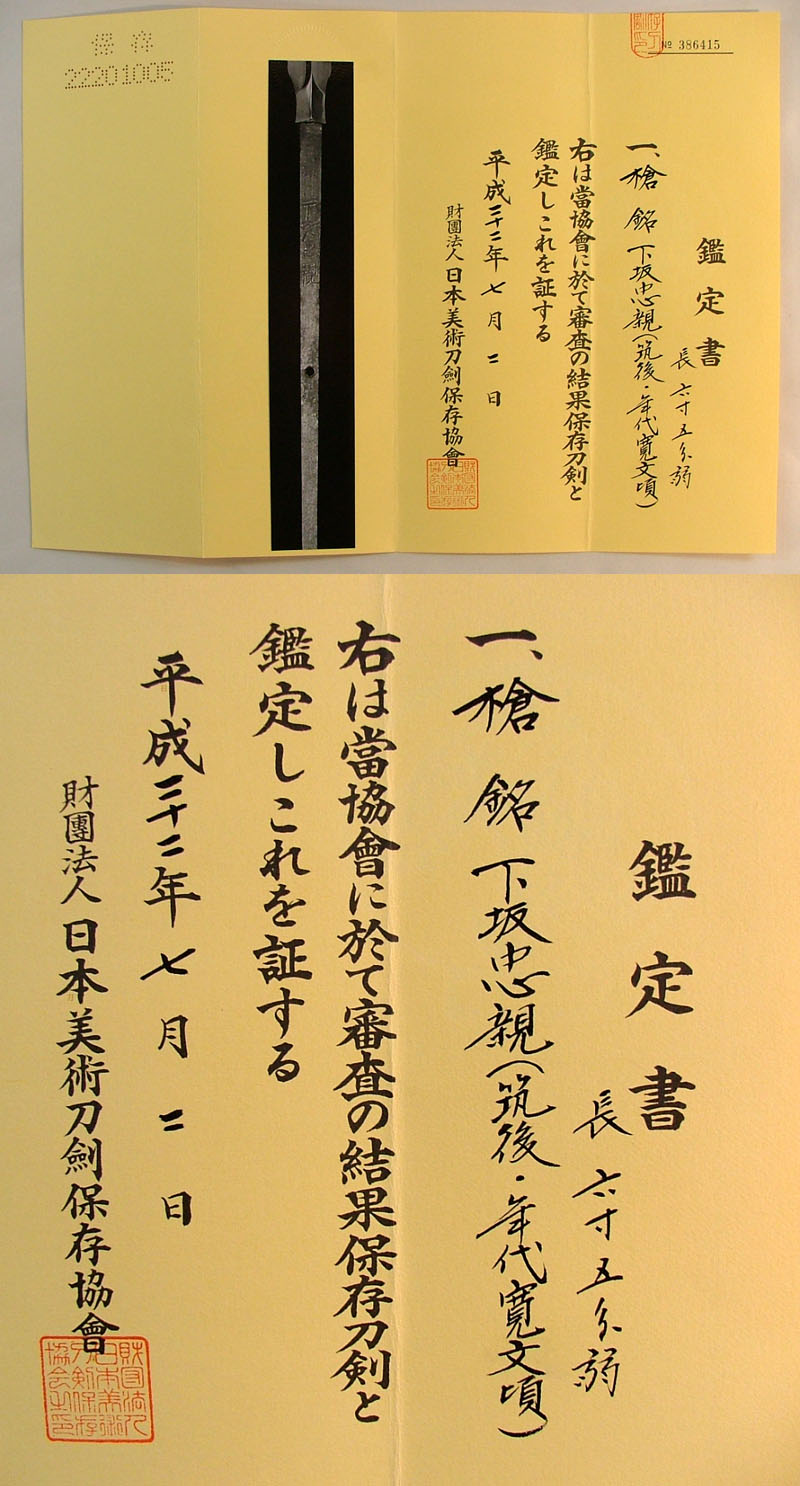 保存
22201005
№ 386415
鑑定書
長六寸五分弱
一、槍 銘 下坂忠親(筑後・年代寛文頃)
右は當協會に於て審査の結果保存刀剣と
鑑定しこれを証する
平成二十二年七月二日
財團法人 日本美術刀劍保存協會
鑑定書
長六寸五分弱
一、槍 銘 下坂忠親(筑後・年代寛文頃)
右は當協會に於て審査の結果保存刀剣と
鑑定しこれを証する
平成二十二年七月二日
財團法人 日本美術刀劍保存協會